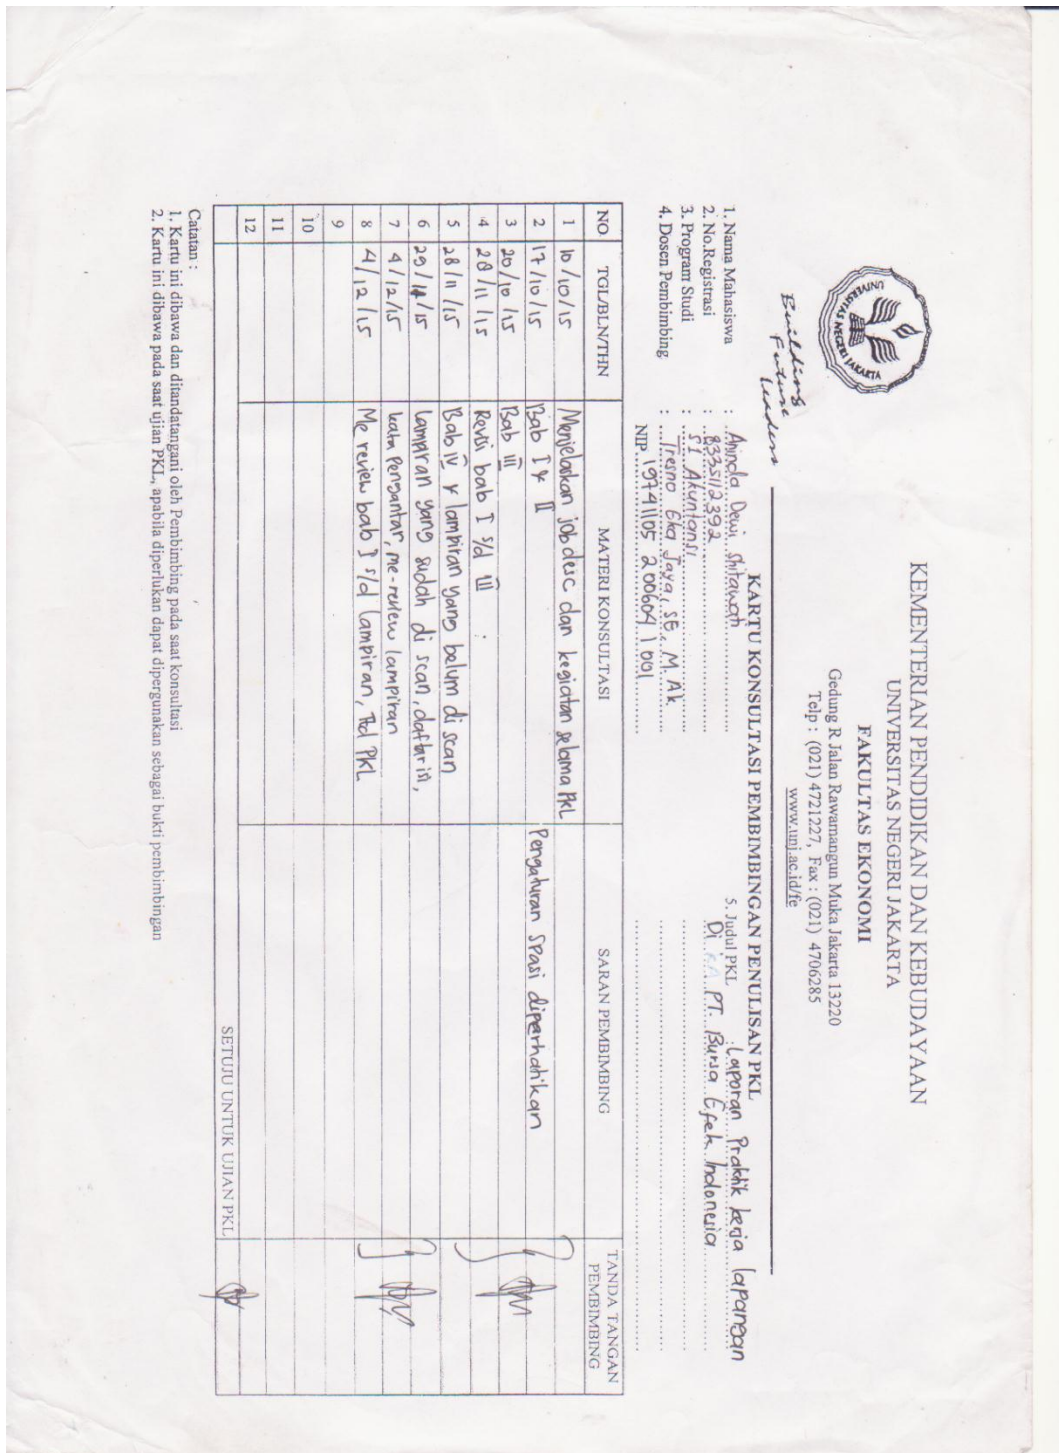 UNIVERSITAS NEGERI JAKARTA
Building
Future
Leaders
KEMENTERIAN PENDIDIKAN DAN KEBUDAYAAN
UNIVERSITAS NEGERI JAKARTA
FAKULTAS EKONOMI
Gedung R Jalan Rawamangun Muka Jakarta 13220
Telp : (021) 4721227, Fax : (021) 4706285
www.unj.ac.id/fe
KARTU KONSULTASI PEMBIMBINGAN PENULISAN PKL
1. Nama Mahasiswa : Aninda Dewi
2. No.Registrasi : 8335112392
3. Program Studi : S1 Akuntansi
4. Dosen Pembimbing : Tresno Eka Jaya, SE, M. Ak.
NIP. 19741105 200604 1 001
5. Judul PKL : Laporan Praktik kerja lapangan
Di PT. Bursa Efek Indonesia
NO TGL/BLN/THN MATERI KONSULTASI SARAN PEMBIMBING TANDA TANGAN PEMBIMBING
1 10/10/15 Menjelaskan jobdesc dan kegiatan selama PKL
2 17/10/15 Bab I & II Pengaturan spasi diperhatikan
3 20/10/15 Bab III
4 28/11/15 Revisi bab I s/d III
5 28/11/15 Bab IV & lampiran yang belum di scan
6 29/11/15 Lampiran yang sudah di scan, daftar isi,
7 4/12/15 kata pengantar, me-review lampiran
8 4/12/15 Me review bab I s/d lampiran, PKL
9
10
11
12
SETUJU UNTUK UJIAN PKL
Catatan :
1. Kartu ini dibawa dan ditandatangani oleh Pembimbing pada saat konsultasi
2. Kartu ini dibawa pada saat ujian PKL, apabila diperlukan dapat dipergunakan sebagai bukti pembimbingan